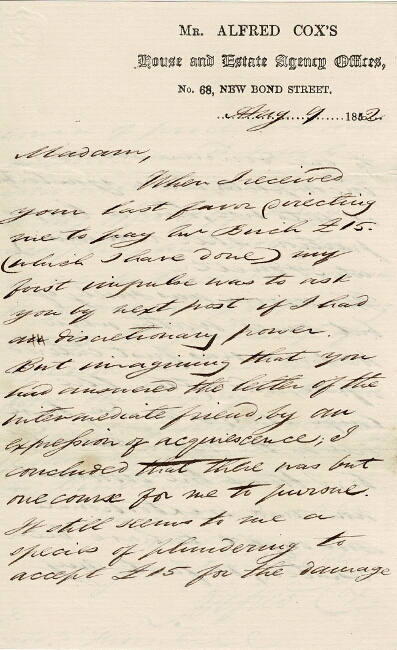 MR. ALFRED COX'S
House and Estate Agency Offices,
No. 68, NEW BOND STREET.
Aug 9 185
Madam,
When I received
your last favor (directing
me to pay Mr Birch £15.
(which I have done) my
first impulse was to ask
you by next post if I had
discretionary power.
But imagining that you
had answered the letter of the
intermediate friend, by an
expression of acquiescence, I
concluded that there was but
one course for me to pursue.
It still seems to me a
species of plundering to
accept £15 for the damage